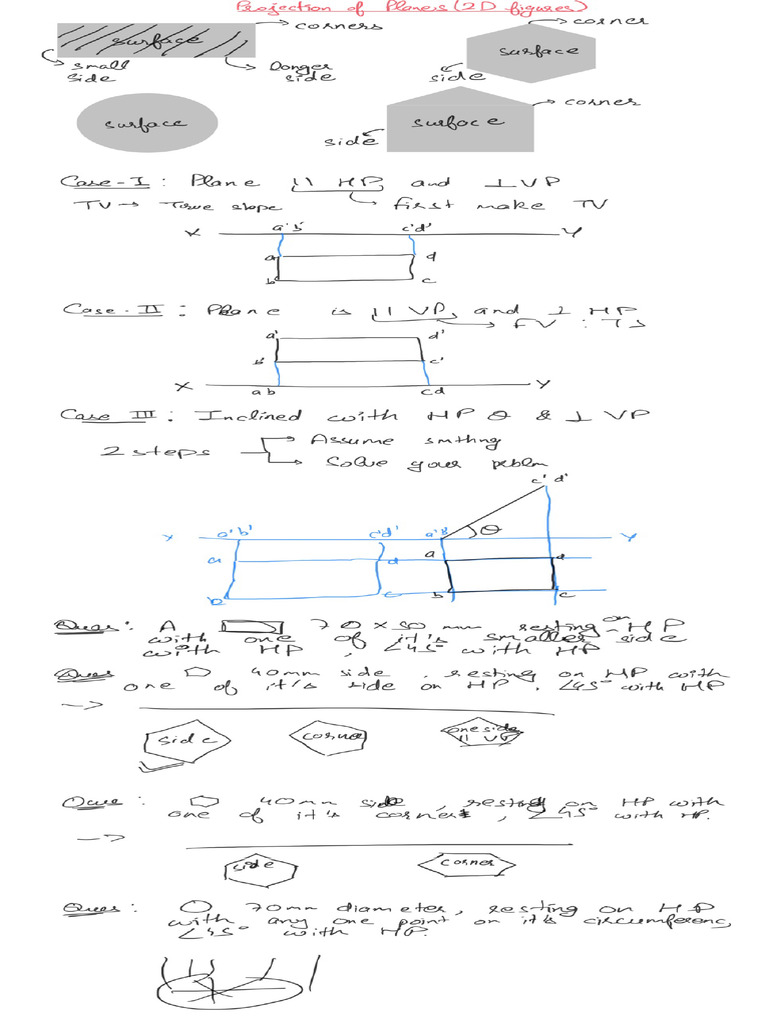 Projection of Planes (2D figures)
surface
corners
small side
Longer side
corner
surface
side
surface
corner
surface
side
Case-I : Plane || HP and ⊥ VP
TV → True shape
First make TV
X a'b' c'd' Y
a d
b c
Case-II : Plane is || VP, and ⊥ HP
FV : TS
a' d'
b' c'
X ab cd Y
Case III : Inclined with HP θ & ⊥ VP
2 steps
Assume smthng
Solve your
c' d'
X a'b' c'd' a'b' θ Y
a d a d
b c b c
Ques : A 70 x 50 mm resting on HP
with one of it's smaller side
with HP , ∠45° with HP
Ques 40mm side , resting on HP with
one of it's side on HP . ∠45° with HP
-->
side
corner
one side || VP
Ques : 40mm side , resting on HP with
one of it's corner , ∠45° with HP.
-->
side
corner
Ques : 70mm diameter, resting on HP
with any one point on it's circumferenc,
∠45° with HP.